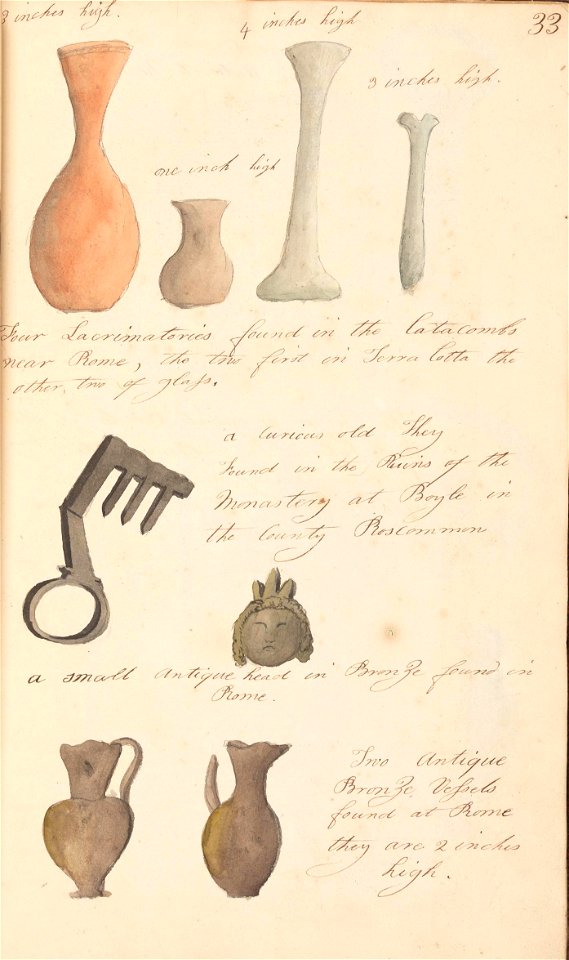 3 inches high.
4 inches high
33
3 inches high.
one inch high
Four Lacrimatories found in the Catacombs
near Rome, the two first in Terra Cotta the
other two of glass.
a Curious old Key
Found in the Ruins of the
Monastery at Boyle in
the County Roscommon
a small Antique head in Bronze found in
Rome.
Two Antique
Bronze Vessels
found at Rome
they are 2 inches
high.